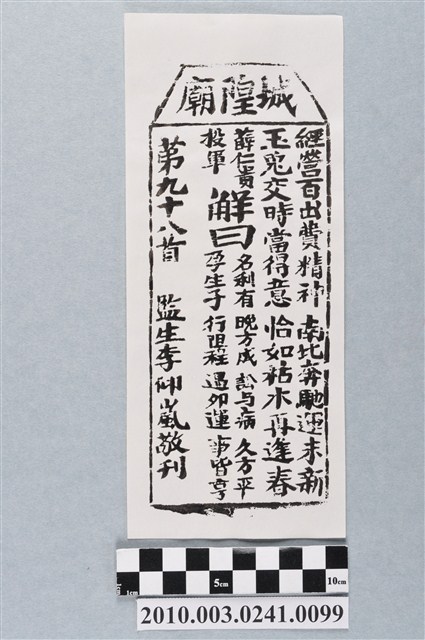 城隍廟
經營百出費精神 南北奔馳運未新
玉兎交時當得意 恰如枯木再逢春
薛仁貴投軍
解曰
名利有 晚方成 訟与病 久方平
孕生子 行阻程 遇卯運 事皆亨
第九十八首 監生李仰嵐敬刊
1cm 5cm 10cm
2010.003.0241.0099